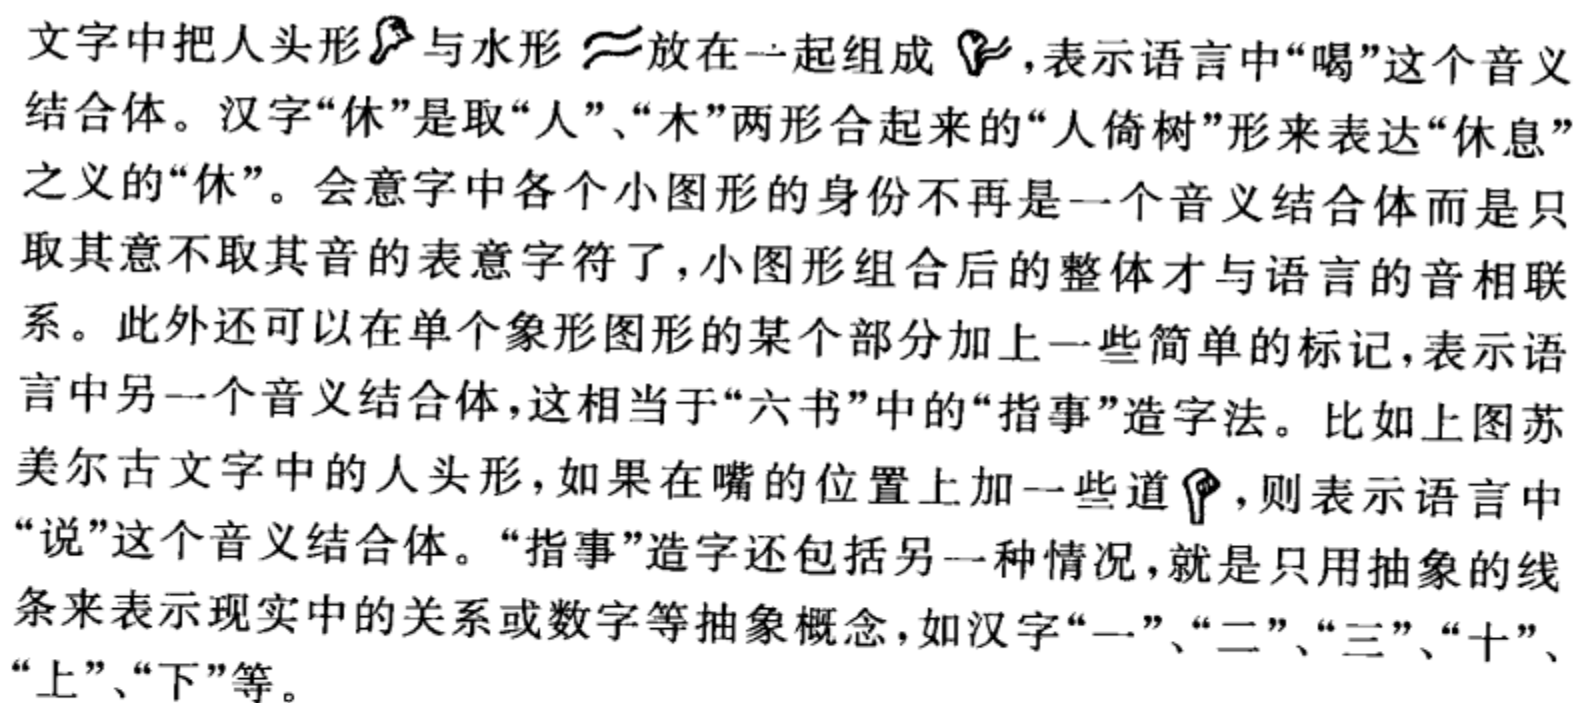 文字中把人头形与水形放在一起组成,表示语言中“喝”这个音义
结合体。汉字“休”是取“人”、“木”两形合起来的“人倚树”形来表达“休息”
之义的“休”。会意字中各个小图形的身份不再是一个音义结合体而是只
取其意不取其音的表意字符了,小图形组合后的整体才与语言的音相联
系。此外还可以在单个象形图形的某个部分加上一些简单的标记,表示语
言中另一个音义结合体,这相当于“六书”中的“指事”造字法。比如上图苏
美尔古文字中的人头形,如果在嘴的位置上加一些道,则表示语言中
“说”这个音义结合体。“指事”造字还包括另一种情况,就是只用抽象的线
条来表示现实中的关系或数字等抽象概念,如汉字“一”、“二”、“三”、“十”、
“上”、“下”等。